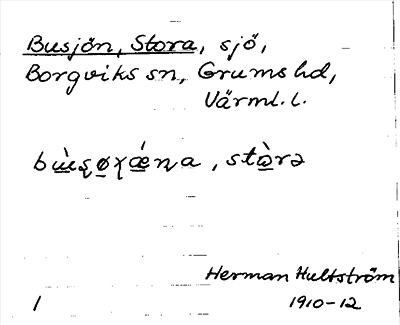 Busjön, Stora, sjö,
Borgviks sn, Grums hd,
Värml. l.
stòrə
Herman Hultström
1 1910-12